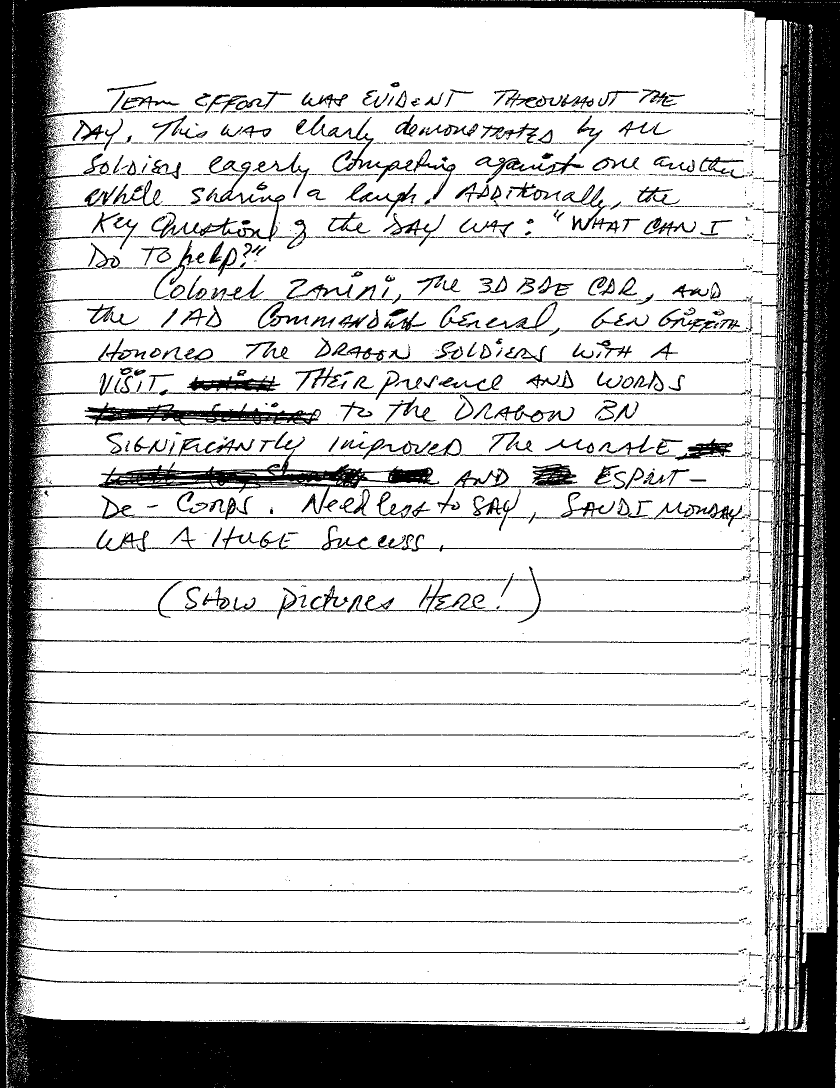 TEAM EFFORT WAS EVIDENT THROUGHOUT THE
DAY. This WAS clearly demonstrated by ALL
Soldiers eagerly Competing against one another
while sharing a laugh. ADDITIONALLY, the
Key Question of the DAY WAS: "WHAT CAN I
Do To help?"
Colonel ZANiNi, The 3D BDE CDR, AND
the 1AD COMMANDING General, GEN GRIFFITH
HONORED THE DRAGON SOLDIERS WITH A
VISIT. which THEIR Presence AND WORDS
to The Soldiers to the DRAGON BN
SIGNIFICANTLY IMPROVED THE MORALE
AND ESPRIT-
De-CORPS. Needless to SAY, SAUDI MONDAY
WAS A HUGE SUCCESS.
(SHOW PICTURES HERE!)